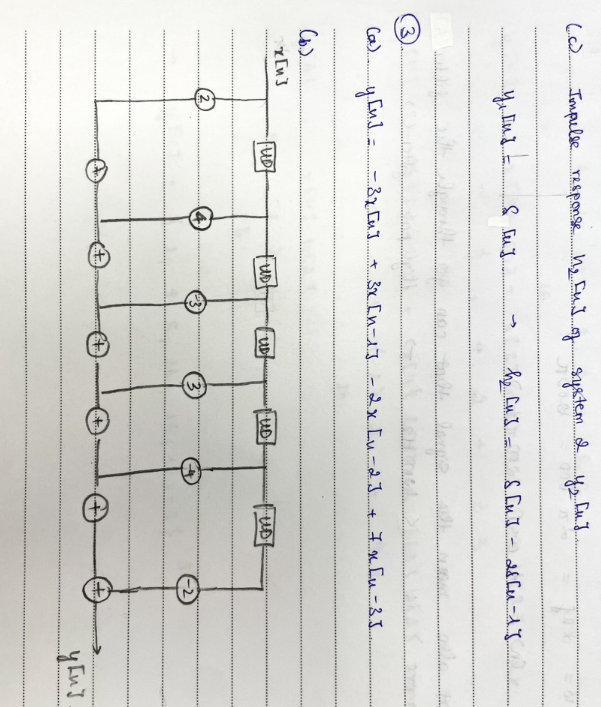 (c) Impulse response h₂[n] of system 2 y₂[n].
y₁[n] = δ[n] → h₂[n] = δ[n] - 2δ[n-1]
③
(a) y[n] = -3x[n] + 3x[n-1] - 2x[n-2] + 7x[n-3]
(b)
x[n] UD UD UD UD UD
2 4 -3 3 -4 -2
+ + + + + + y[n]